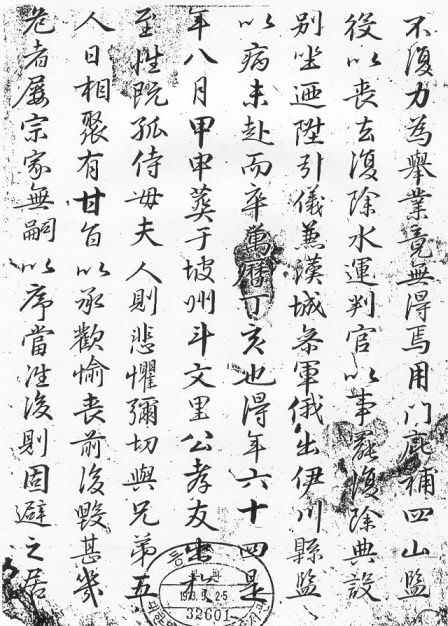 不復力為舉業竟無得焉用門蔭補四山監
役以喪去復除水運判官以事罷復除典設
別坐迺陞引儀兼漢城參軍俄出伊川縣監
以病未赴而卒萬曆丁亥也得年六十四是
年八月甲申葬于坡州斗文里公孝友出於
至性旣孤侍毋夫人則悲懼彌切與兄弟五
人日相聚有甘旨以承歡愉喪前後毀甚幾
危者屢宗家無嗣以序當津後則固避之居
1973.5.25
32601